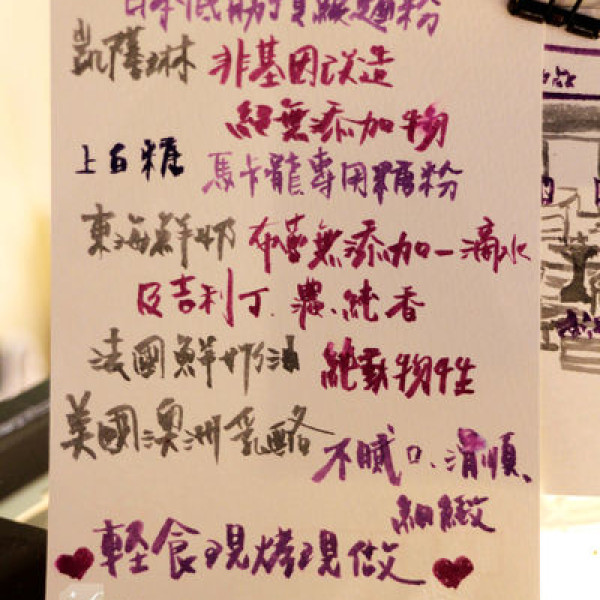 日本低筋頂級麵粉
凱薩琳 非基因改造
絕無添加物
上白糖 馬卡龍專用糖粉
東海鮮奶 布蕾無添加一滴水
及吉利丁.濃.純香
法國鮮奶油 純動物性
美國澳洲乳酪 不膩口、滑順、
細緻
輕食現烤現做